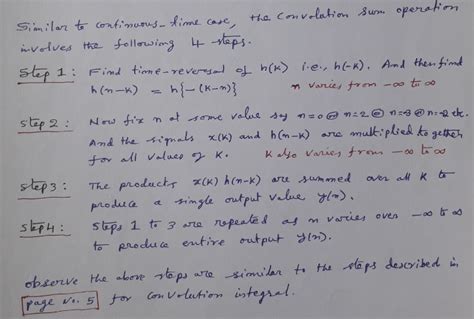 Similar to continuous-time case, the Convolution Sum operation
involves the following 4 steps.
Step 1: Find time-reversal of h(k) i.e., h(-k). And then find
h(n-k) = h{-(k-n)} n varies from -∞ to ∞
Step 2: Now fix n at some value say n=0 @ n=2 @ n=3 @ n=-2 etc.
And the signals x(k) and h(n-k) are multiplied together
for all values of k. k also varies from -∞ to ∞
Step 3: The products x(k) h(n-k) are summed over all k to
produce a single output value y(n).
Step 4: Steps 1 to 3 are repeated as n varies over -∞ to ∞
to produce entire output y(n).
observe the above steps are similar to the steps described in
page no. 5 for convolution integral.